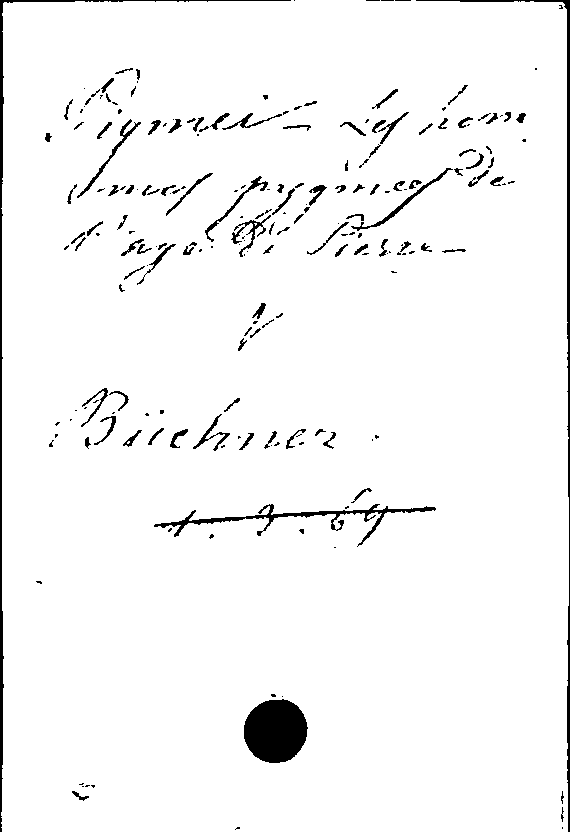 Pigmei - Les hom
mes pygmees de
l'age de Pierre -
V
Büchner.
1. 3. 69